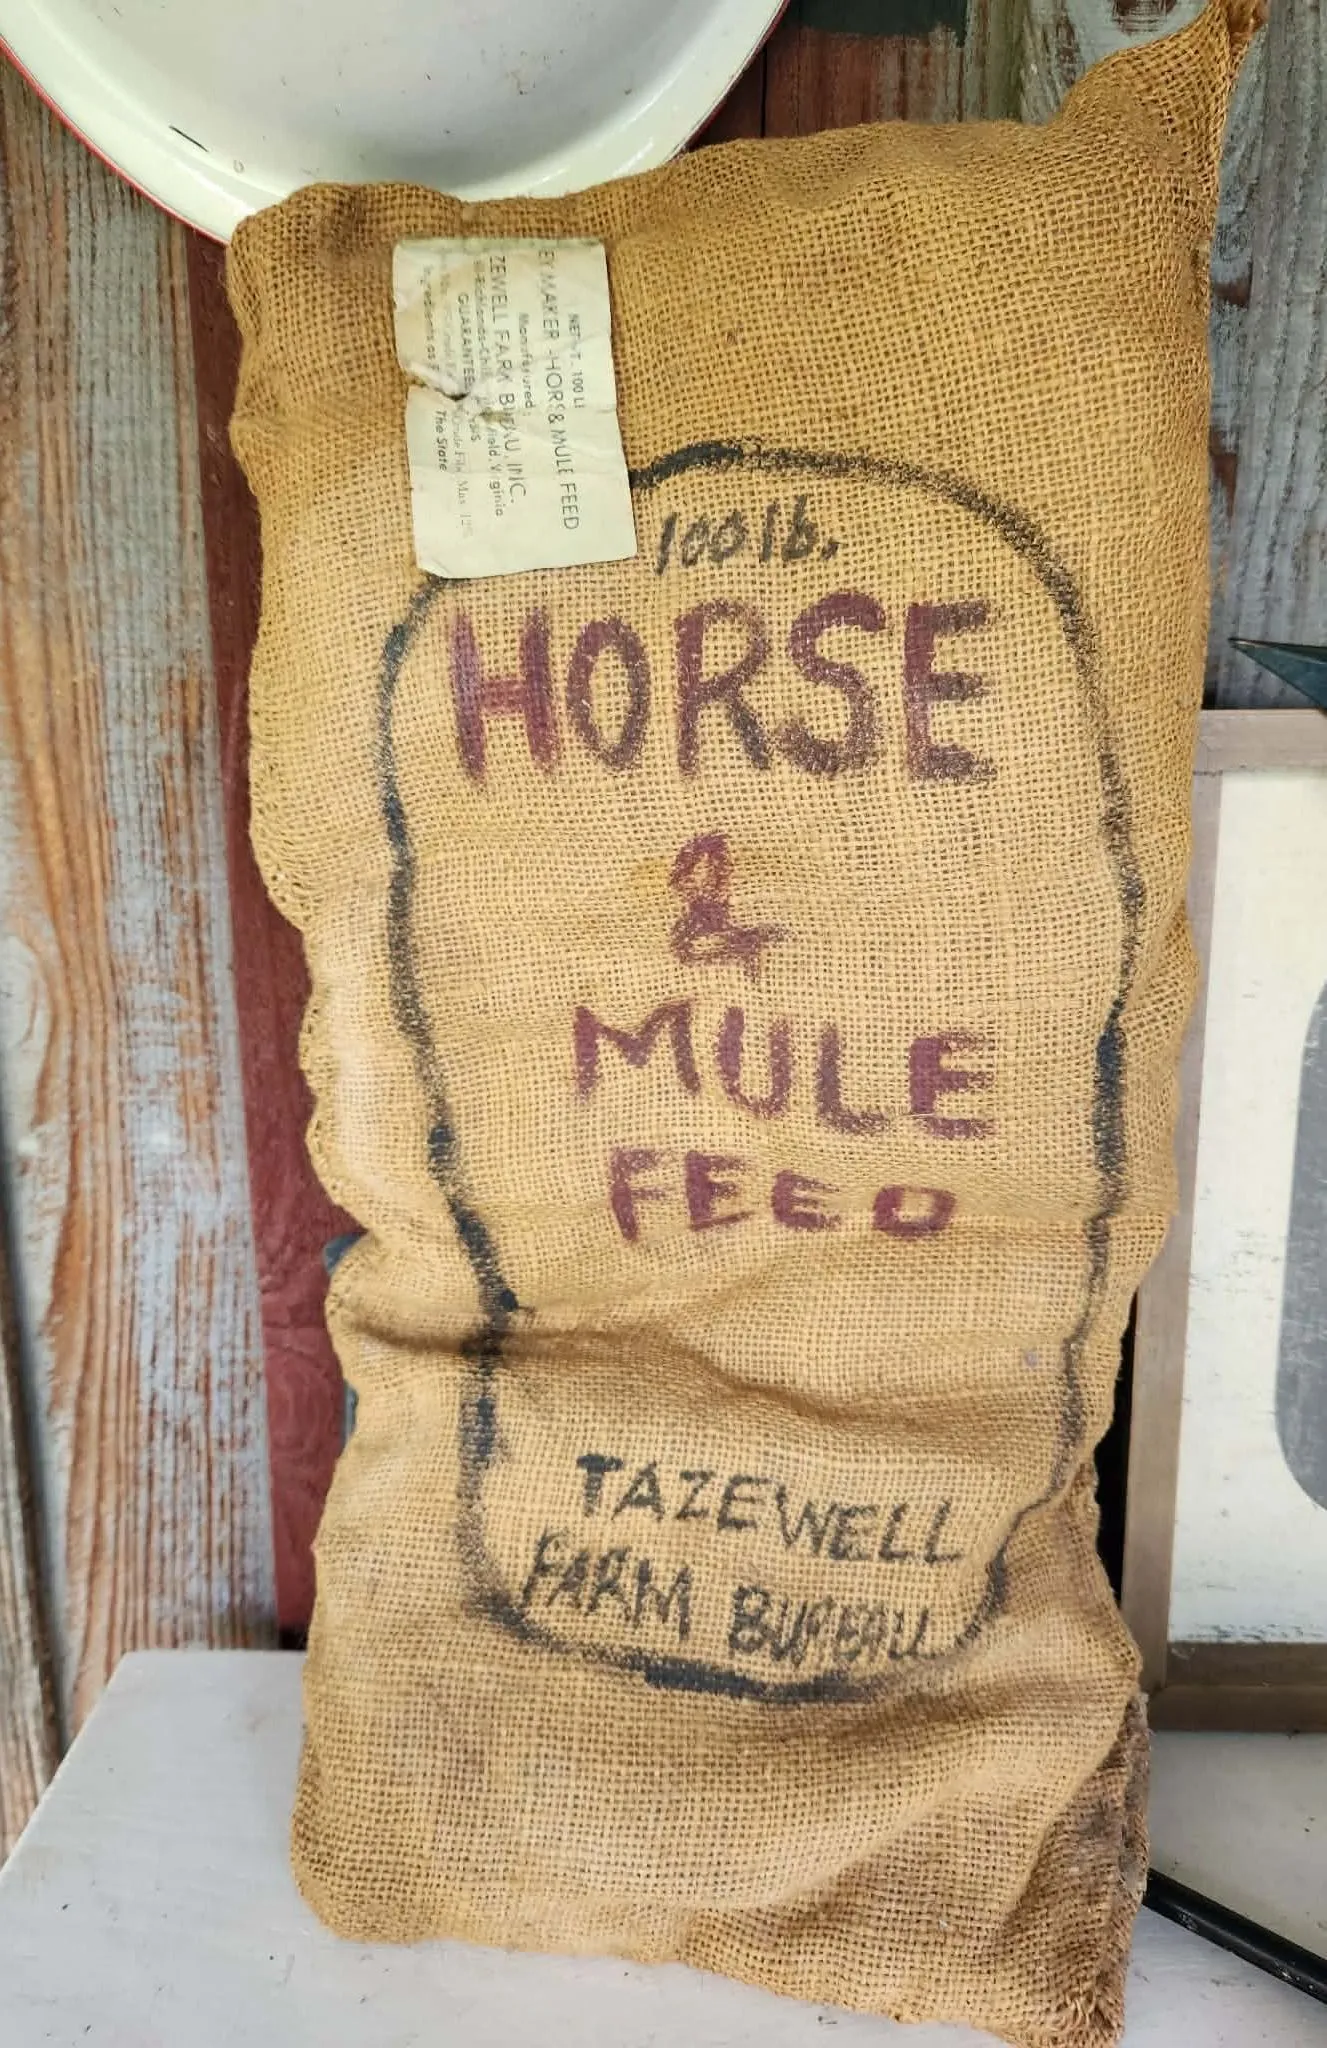 NET WT. 100 LB
EY MAKER - HORSE & MULE FEED
Manufactured
ZEWELL FARM BUREAU, INC.
Virginia
GUARANTEED
Max. 12%
The State
100 lb.
HORSE
&
MULE
FEED
TAZEWELL
FARM BUREAU